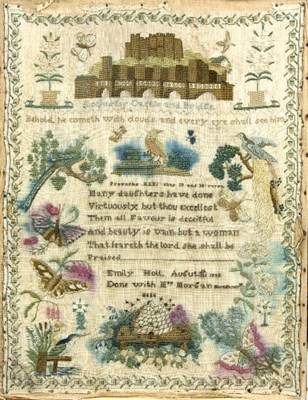 Rochester Castle and Bridge
Behold, he cometh with clouds and every eye shall see him
Proverbs XXXI
Many daughters have done
Virtuously but thou excellest
Them all Favour is deceitful
And beauty is vain but a woman
That feareth the lord she shall be
Praised
Emily Holl
Done with Mrs Morgan